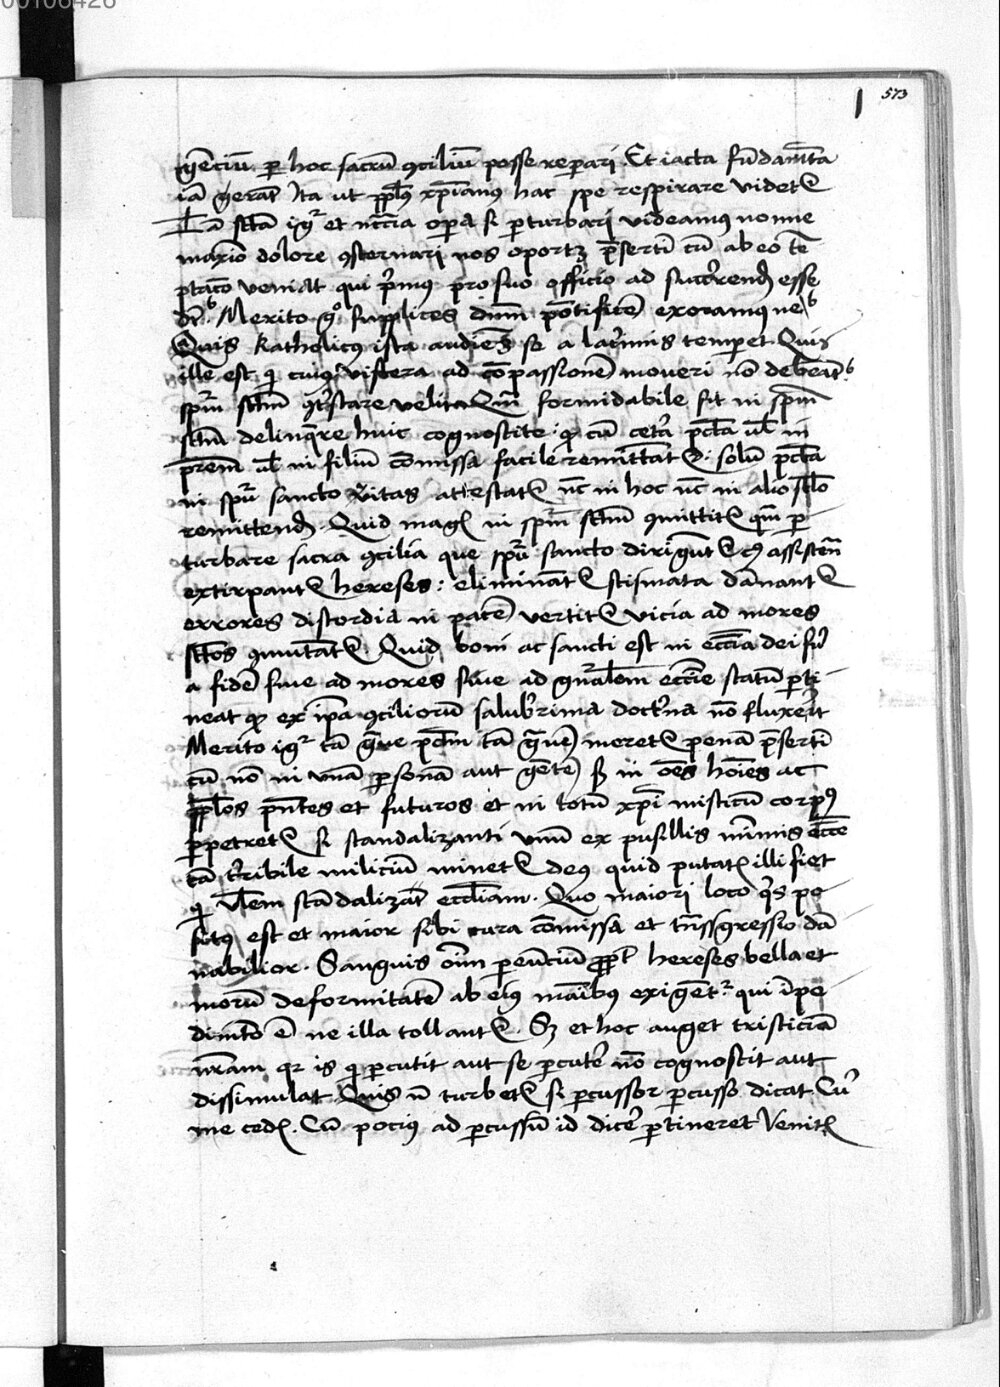 00106426
573
gēciū per hoc sacrū ɔciliū posse reperari Et iacta fūdamēta
iā gerāt Ita ut pplūs xp̄ianus hac spe respirare videtur
Tā sctā igr et nccīa opa si perturbari videamus nonne
maxīo dolore ɔsternari nos oportꝫ p̄sertī cū ab eo
veniāt qui p̄mus pro suo officio ad succ̄rendū esse
Merito gº supplices dnm pōtificē exoramus
Quis katholicus ista audiens se a lac̄rimis temperet Quis
ille est qͥ cuius viscera ad cōpassionē moveri nō debeāt
spm̄ sctm̄ ɔt̄star velit Qm̄ formidabile sit in spm̄
sctm̄ delinq̄re huic cognoscite qꝫ cū cetā pctā ul̄ in
prēm ul̄ in filiū cōmissa facile remittātur solū pctā
in spū sancto v̄itas attestatur nc̄ in hoc nc̄ in alio sclō
remittendū Quid magis in spm̄ sctm̄ ɔmittitur qm̄ per
turbare sacra ɔcilia que spū sancto dirigūtur assistēn
extirpantur hereses: eliminātur scismata dānantur
errores discordia in pacē vertitur vicia ad mores
sctōs ɔmutātur Quid boni ac sancti est in ecclīa dei
a fidē sive ad mores sive ad gn̄alem ecclīe statū perti
neat qꝫ ex ipā ɔciliorū salub̄rima doct̄na nō fluxerit
Merito igr tā g̃ve pctm̄ tā g̃vē meretur penā p̄sertī
cū nō in unā personā aut gētē sꝫ in oēs hōies ac
pplōs p̄ntes et futuros et in totū xp̄i misticū corpus
perpetretur si scandalizanti unū ex pusillis minimis ecclē
tā t̄ribile miliciū minetur deus quid putatis illi fiet
qͥ ul̄em scādalizāt ecclīam. Quo maiori loco qͥs po
situs est et maior sibi cura cōmissa et tn̄sgressio dā
nabilior. Sanguis oīm pereūciū ppt̄ hereses bella et
morū deformitatē ab eius māibus exigētur qui īpe
dimēto ē ne illa tollantur. Sꝫ et hoc auget tristiciā
nr̄am qr is qͥ percutit aut se percutē nō cognoscit aut
dissimulat Quis n̄ turbetur si percussor percusso dicat Cur
me cedis. Cū pocius ad percussū id dicē pertineret Venitis